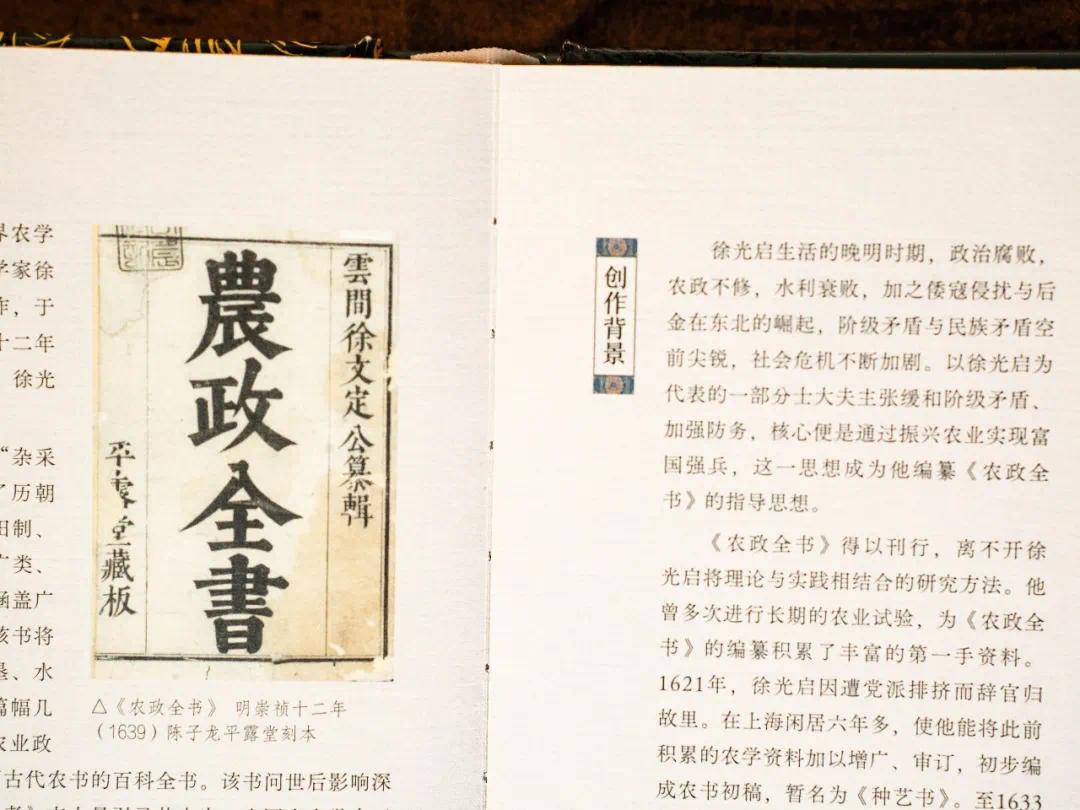 界农学
学家徐
作，于
十二年
徐光
“杂采
了历朝
田制、
广类、
涵盖广
该书将
垦、水
篇幅几
农业政
古代农书的百科全书。该书问世后影响深
雲間徐文定公纂輯
農政全書
平露堂藏板
△《农政全书》 明崇祯十二年
（1639）陈子龙平露堂刻本
创作背景
徐光启生活的晚明时期，政治腐败，
农政不修，水利衰败，加之倭寇侵扰与后
金在东北的崛起，阶级矛盾与民族矛盾空
前尖锐，社会危机不断加剧。以徐光启为
代表的一部分士大夫主张缓和阶级矛盾、
加强防务，核心便是通过振兴农业实现富
国强兵，这一思想成为他编纂《农政全
书》的指导思想。
《农政全书》得以刊行，离不开徐
光启将理论与实践相结合的研究方法。他
曾多次进行长期的农业试验，为《农政全
书》的编纂积累了丰富的第一手资料。
1621年，徐光启因遭党派排挤而辞官归
故里。在上海闲居六年多，使他能将此前
积累的农学资料加以增广、审订，初步编
成农书初稿，暂名为《种艺书》。至1633